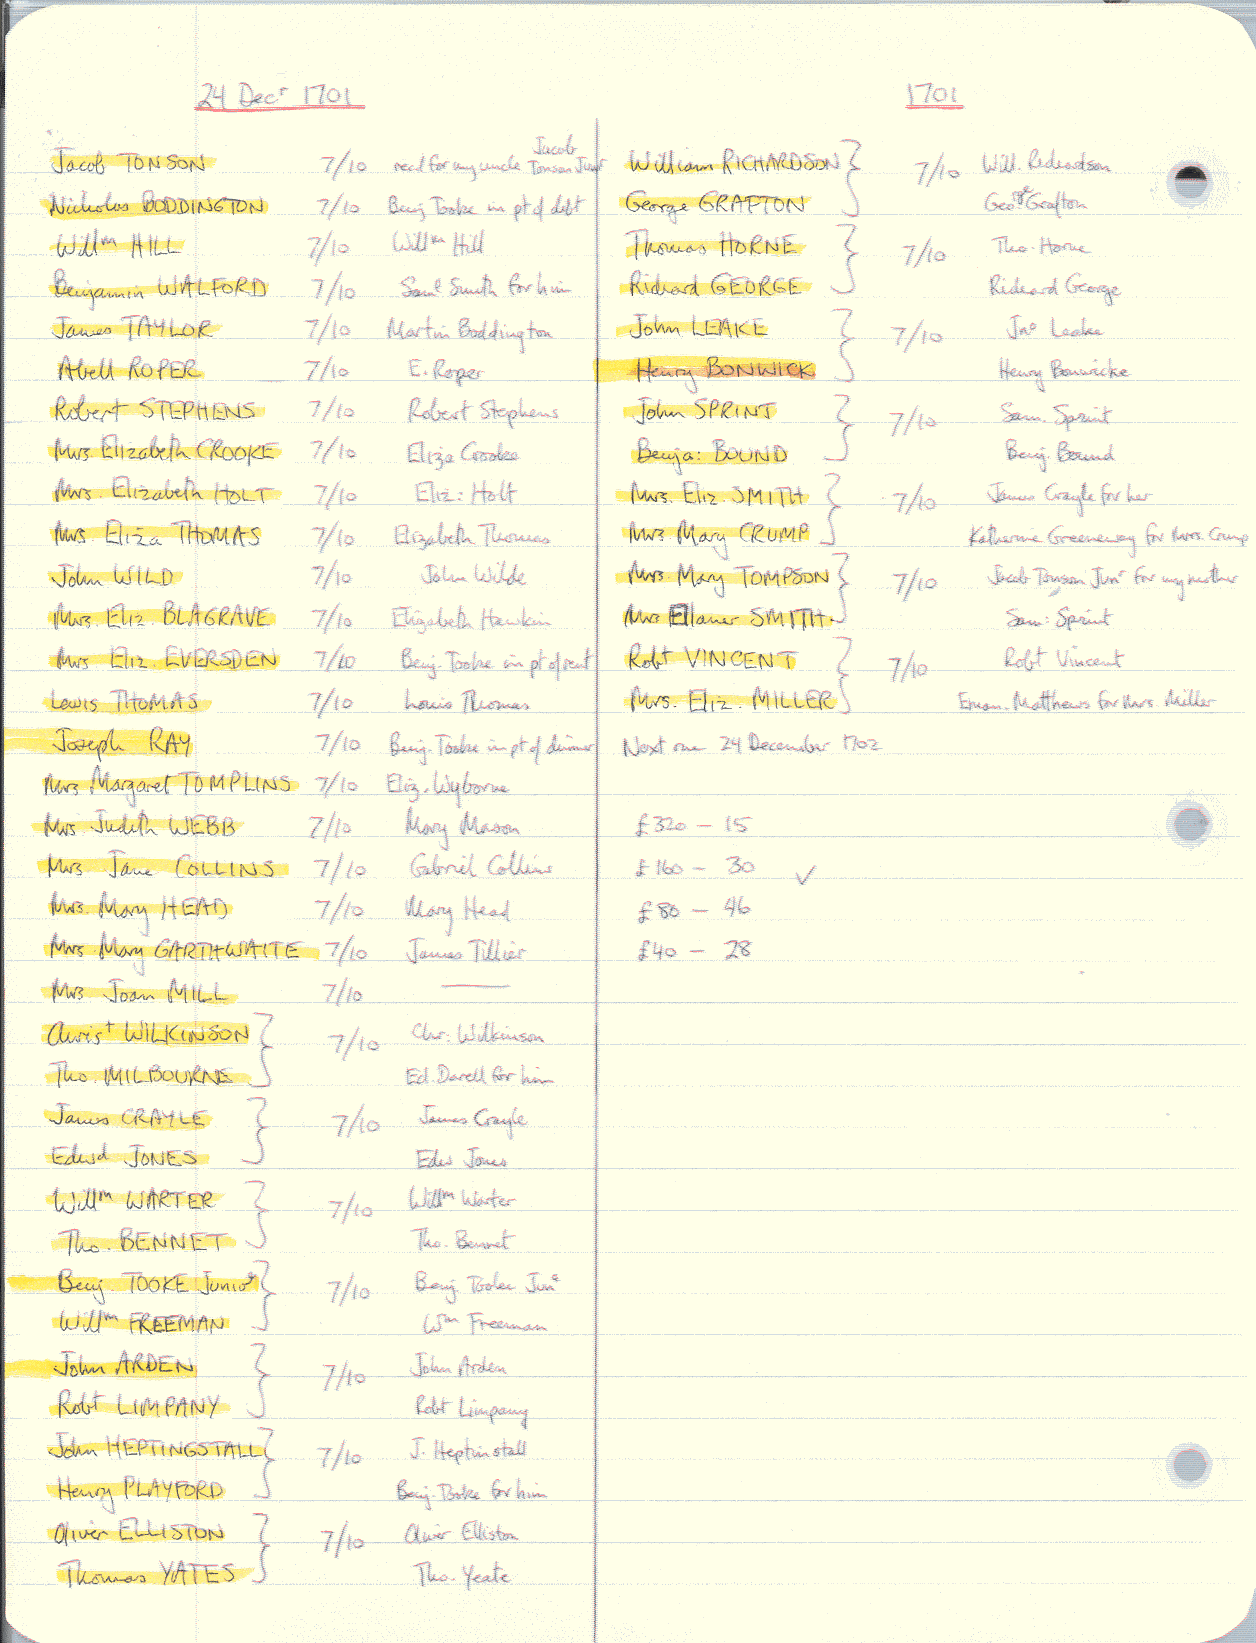 24 Decr 1701
Jacob TONSON 7/10 recd for my uncle Jacob Tonson Junr
Nicholas BODDINGTON 7/10 Benj Tooke in pt of debt
Willm HILL 7/10 Willm Hill
Benjamin WALFORD 7/10 Saml Smith for him
James TAYLOR 7/10 Martin Boddington
Abell ROPER 7/10 E. Roper
Robert STEPHENS 7/10 Robert Stephens
Mrs. Elizabeth CROOKE 7/10 Eliza Crooke
Mrs. Elizabeth HOLT 7/10 Eliz: Holt
Mrs. Eliza THOMAS 7/10 Elizabeth Thomas
John WILD 7/10 John Wilde
Mrs. Eliz. BLAGRAVE 7/10 Elizabeth Hawkin
Mrs. Eliz. EVERSDEN 7/10 Benj. Tooke in pt of rent
Lewis THOMAS 7/10 Lewis Thomas
Joseph RAY 7/10 Benj. Tooke in pt of dinner
Mrs Margaret TOMPLINS 7/10 Eliz. Wyborne
Mrs. Judith WEBB 7/10 Mary Mason
Mrs Jane COLLINS 7/10 Gabriel Collins
Mrs. Mary HEAD 7/10 Mary Head
Mrs. Mary GARTHWAITE 7/10 James Tillier
Mrs Joan MILL 7/10 ——
Christ WILKINSON } 7/10 Chr: Wilkinson
Tho. MILBOURNE } Ed. Darell for him
James CRAYLE } 7/10 James Crayle
Edwd JONES } Edw Jones
Willm WARTER } 7/10 Willm Warter
Tho. BENNET } Tho. Bennet
Benj. TOOKE Junior } 7/10 Benj. Tooke Junr
Willm FREEMAN } Wm Freeman
John ARDEN } 7/10 John Arden
Robt LIMPANY } Robt Limpany
John HEPTINGSTALL } 7/10 J. Heptinstall
Henry PLAYFORD } Benj. Tooke for him
Oliver ELLISTON } 7/10 Oliver Elliston
Thomas YATES } Tho. Yeate
1701
William RICHARDSON } 7/10 Will. Richardson
George GRAFTON } Geo Grafton
Thomas HORNE } 7/10 Tho. Horne
Richard GEORGE } Richard George
John LEAKE } 7/10 Jno Leake
Henry BONWICK } Henry Bonwicke
John SPRINT } 7/10 Sam. Sprint
Benja: BOUND } Benj. Bound
Mrs. Eliz. SMITH } 7/10 James Crayle for her
Mrs Mary CRUMP } Katherine Greeneway for Mrs. Crump
Mrs. Mary TOMPSON } 7/10 Jacob Tonson Junr for my mother
Mrs Ellaner SMITH } Sam: Sprint
Robt VINCENT } 7/10 Robt Vincent
Mrs. Eliz. MILLER } Eman. Matthews for Mrs. Miller
Next one 24 December 1702
£320 – 15
£160 – 30 ✓
£80 – 46
£40 – 28